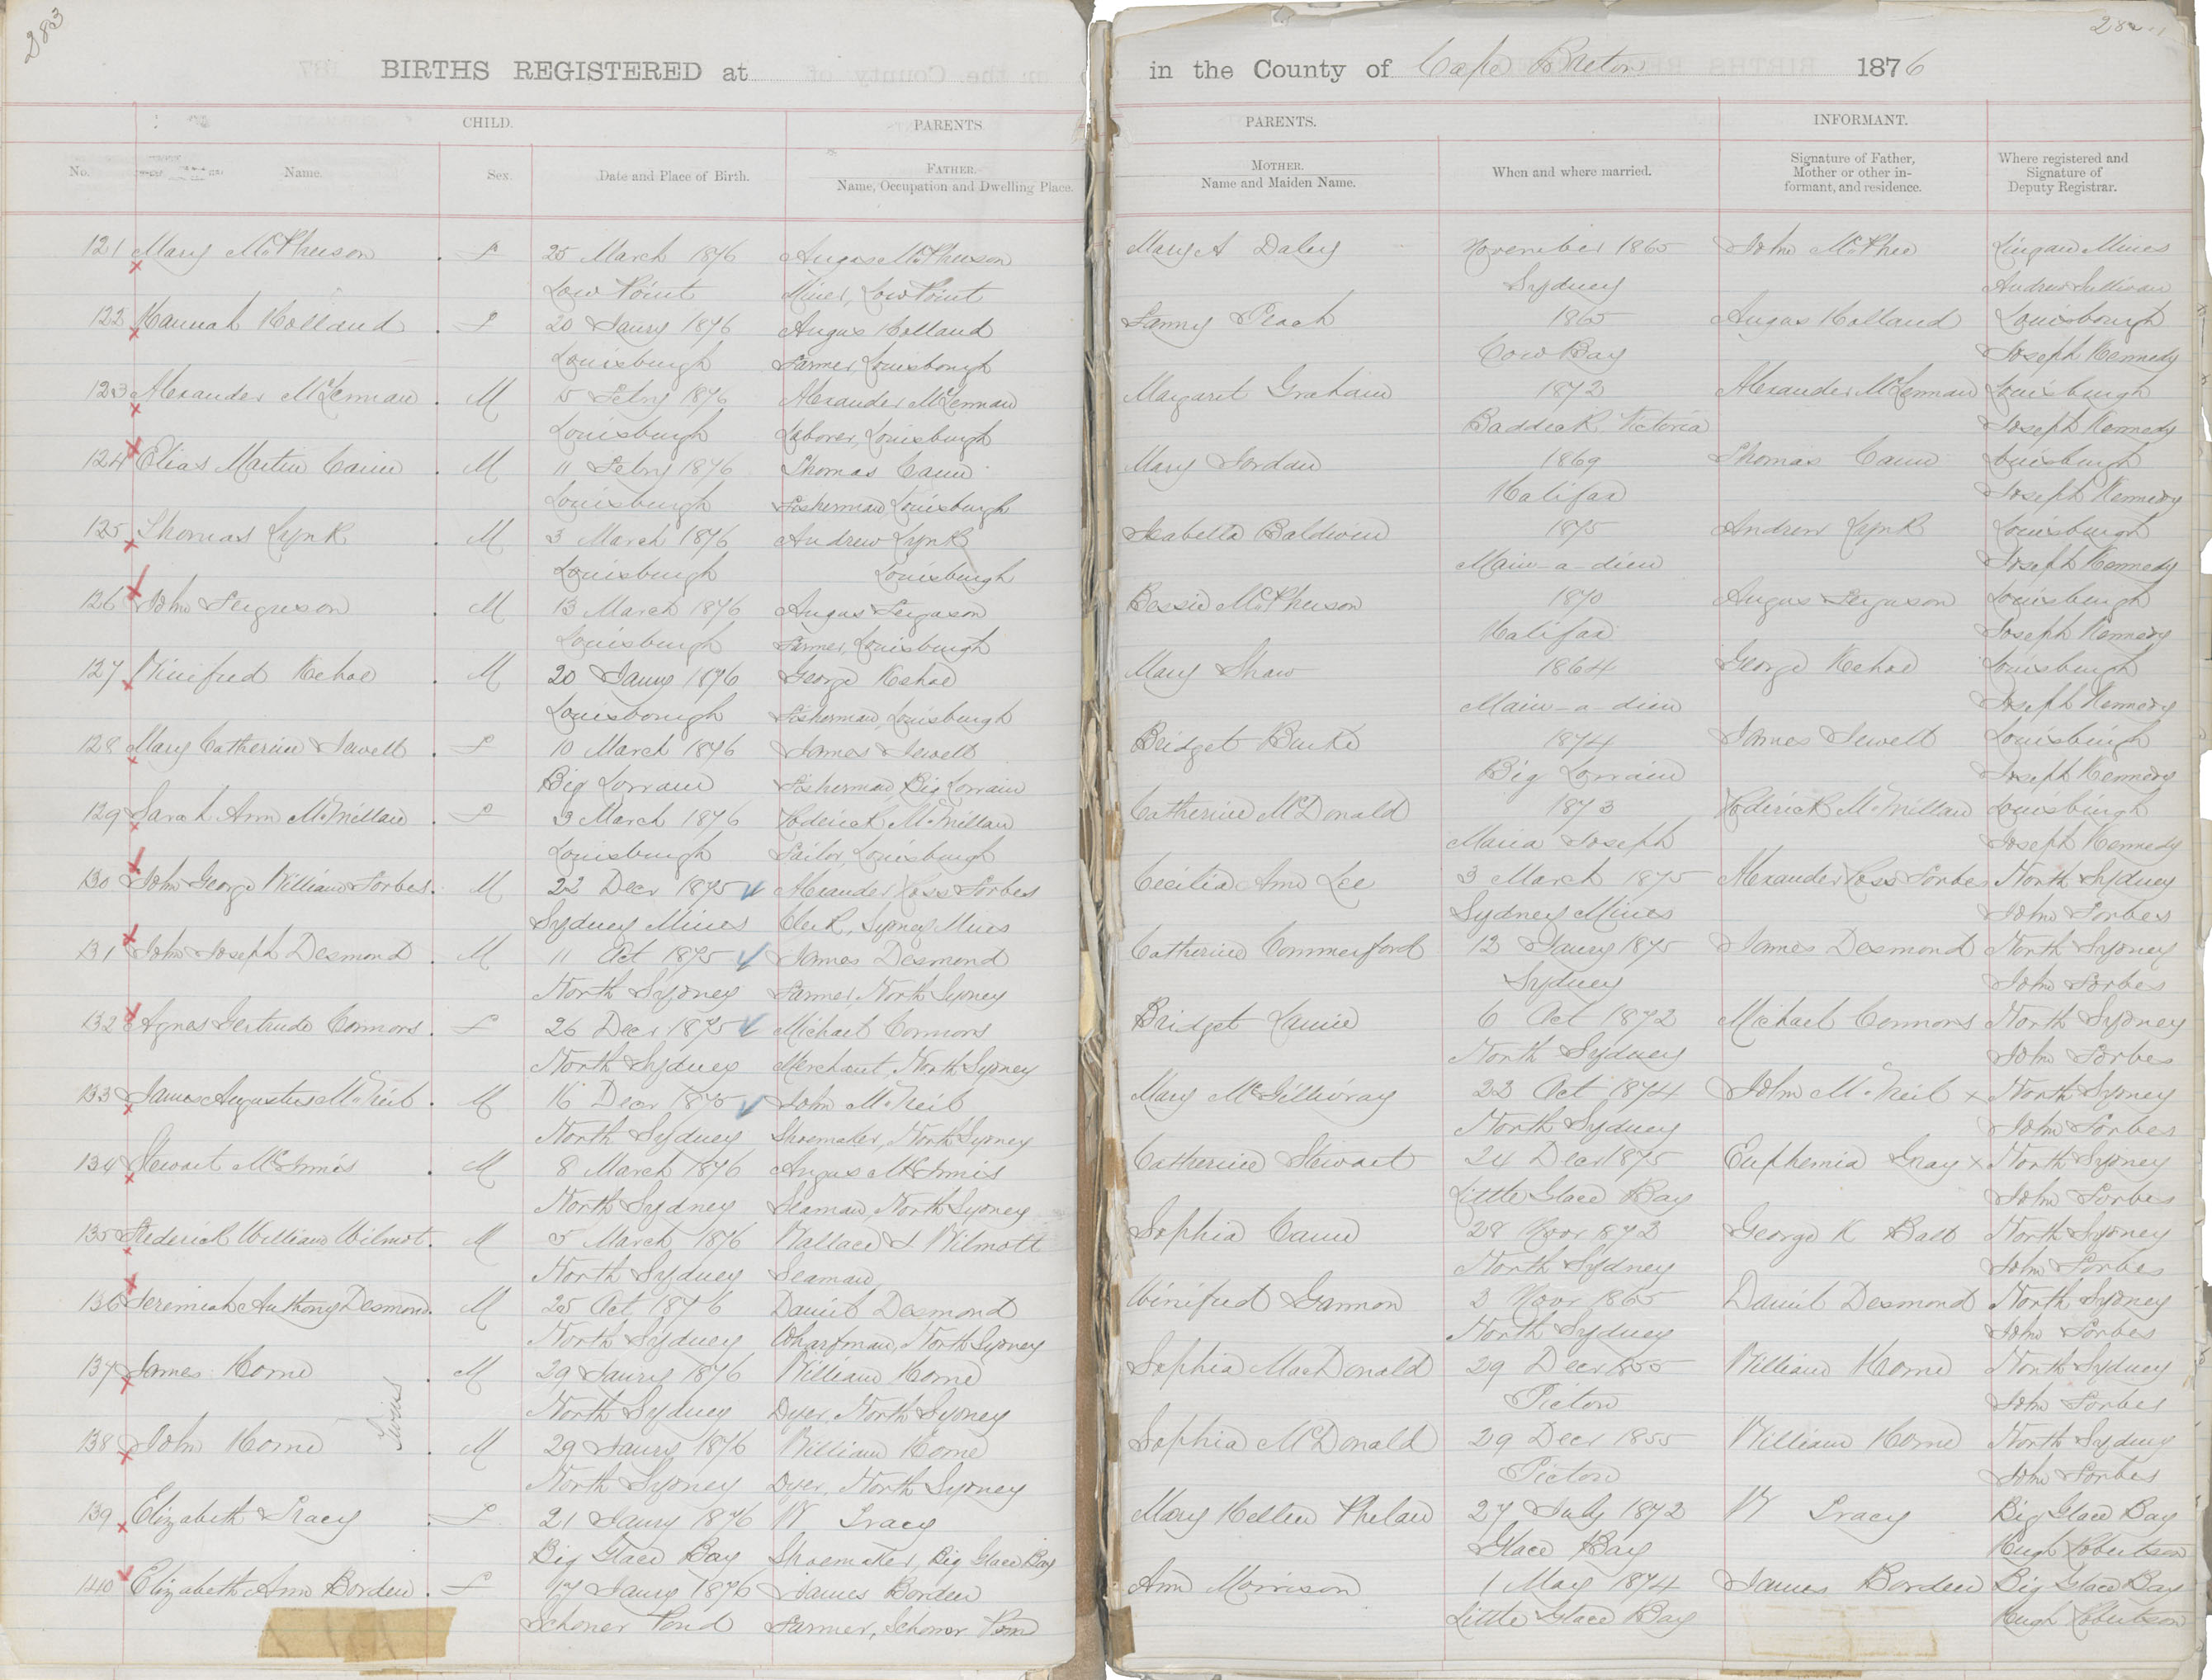 283
284
BIRTHS REGISTERED at
in the County of Cape Breton 1876
CHILD.
PARENTS
PARENTS.
INFORMANT.
No.
Name.
Sex.
Date and Place of Birth.
FATHER.
Name, Occupation and Dwelling Place.
MOTHER.
Name and Maiden Name.
When and where married.
Signature of Father,
Mother or other in-
formant, and residence.
Where registered and
Signature of
Deputy Registrar.
121 Mary McPherson F 25 March 1876 Angus McPherson Mary A Daley November 1865 John McPhee Lingan Mines
Low Point Miner, Low Point Sydney Andrew Sullivan
122 Hannah Holland F 20 Jany 1876 Angus Holland Fanny Peach 1865 Angus Holland Louisbourgh
Louisburgh Farmer, Louisbourgh Cow Bay Joseph Kennedy
123 Alexander McLennan M 5 Febry 1876 Alexander McLennan Margaret Graham 1872 Alexander McLennan Louisburgh
Louisburgh Laborer, Louisburgh Baddeck Victoria Joseph Kennedy
124 Elias Martin Cann M 11 Febry 1876 Thomas Cann Mary Jordan 1869 Thomas Cann Louisburgh
Louisburgh Fisherman Louisburgh Halifax Joseph Kennedy
125 Thomas Lynk M 3 March 1876 Andrew Lynk Isabella Baldwin 1875 Andrew Lynk Louisburgh
Louisburgh Louisburgh Main-a-dieu Joseph Kennedy
126 John Ferguson M 13 March 1876 Angus Ferguson Bessie McPherson 1870 Angus Ferguson Louisburgh
Louisburgh Farmer, Louisburgh Halifax Joseph Kennedy
127 Winifred Kehoe M 20 Jany 1876 George Kehoe Mary Shaw 1864 George Kehoe Louisburgh
Louisbourgh Fisherman, Louisburgh Main-a-dieu Joseph Kennedy
128 Mary Catherine Jewell F 10 March 1876 James Jewell Bridget Burke 1874 James Jewell Louisburgh
Big Lorrain Fisherman, Big Lorrain Big Lorrain Joseph Kennedy
129 Sarah Ann McMillan F 3 March 1876 Roderick McMillan Catherine McDonald 1873 Roderick McMillan Louisburgh
Louisburgh Sailor, Louisburgh Maria Joseph Joseph Kennedy
130 John George William Forbes M 22 Decr 1875 Alexander Ross Forbes Cecilia Ann Lee 3 March 1875 Alexander Ross Forbes North Sydney
Sydney Mines Clerk, Sydney Mines Sydney Mines John Forbes
131 John Joseph Desmond M 11 Oct 1875 James Desmond Catherine Commerford 12 Jany 1875 James Desmond North Sydney
North Sydney Farmer, North Sydney Sydney John Forbes
132 Agnes Gertrude Connors F 26 Decr 1875 Michael Connors Bridget 6 Oct 1872 Michael Connors North Sydney
North Sydney Merchant, North Sydney North Sydney John Forbes
133 James Augustus McNeil M 16 Decr 1875 John McNeil Mary McGillivray 22 Oct 1874 John McNeil x North Sydney
North Sydney Shoemaker, North Sydney North Sydney John Forbes
134 Stewart McInnis M 8 March 1876 Angus McInnis Catherine Stewart 24 Decr 1875 Euphemia Gray x North Sydney
North Sydney Seaman, North Sydney Little Glace Bay John Forbes
135 Frederick William Wilmot M 5 March 1876 Wallace S Wilmott Sophia Cann 28 Novr 1873 George K Ball North Sydney
North Sydney Seaman, North Sydney John Forbes
136 Jeremiah Anthony Desmond M 25 Oct 1876 Daniel Desmond Winifred Gannon 2 Novr 1865 Daniel Desmond North Sydney
North Sydney Wharfman, North Sydney North Sydney John Forbes
137 James Horne M 29 Jany 1876 William Horne Sophia MacDonald 29 Decr 1855 William Horne North Sydney
Twins
North Sydney Dyer, North Sydney Picton John Forbes
138 John Horne M 29 Jany 1876 William Horne Sophia McDonald 29 Decr 1855 William Horne North Sydney
North Sydney Dyer, North Sydney Picton John Forbes
139 Elizabeth Tracy F 21 Jany 1876 W Tracy Mary Hellen Phelan 27 July 1872 W Tracy Big Glace Bay
Big Glace Bay Shoemaker, Big Glace Bay Glace Bay Hugh Robertson
140 Elizabeth Ann Borden F 17 Jany 1876 James Borden Ann Morrison 1 May 1874 James Borden Big Glace Bay
Schoner Pond Farmer, Schoner Pond Little Glace Bay Hugh Robertson